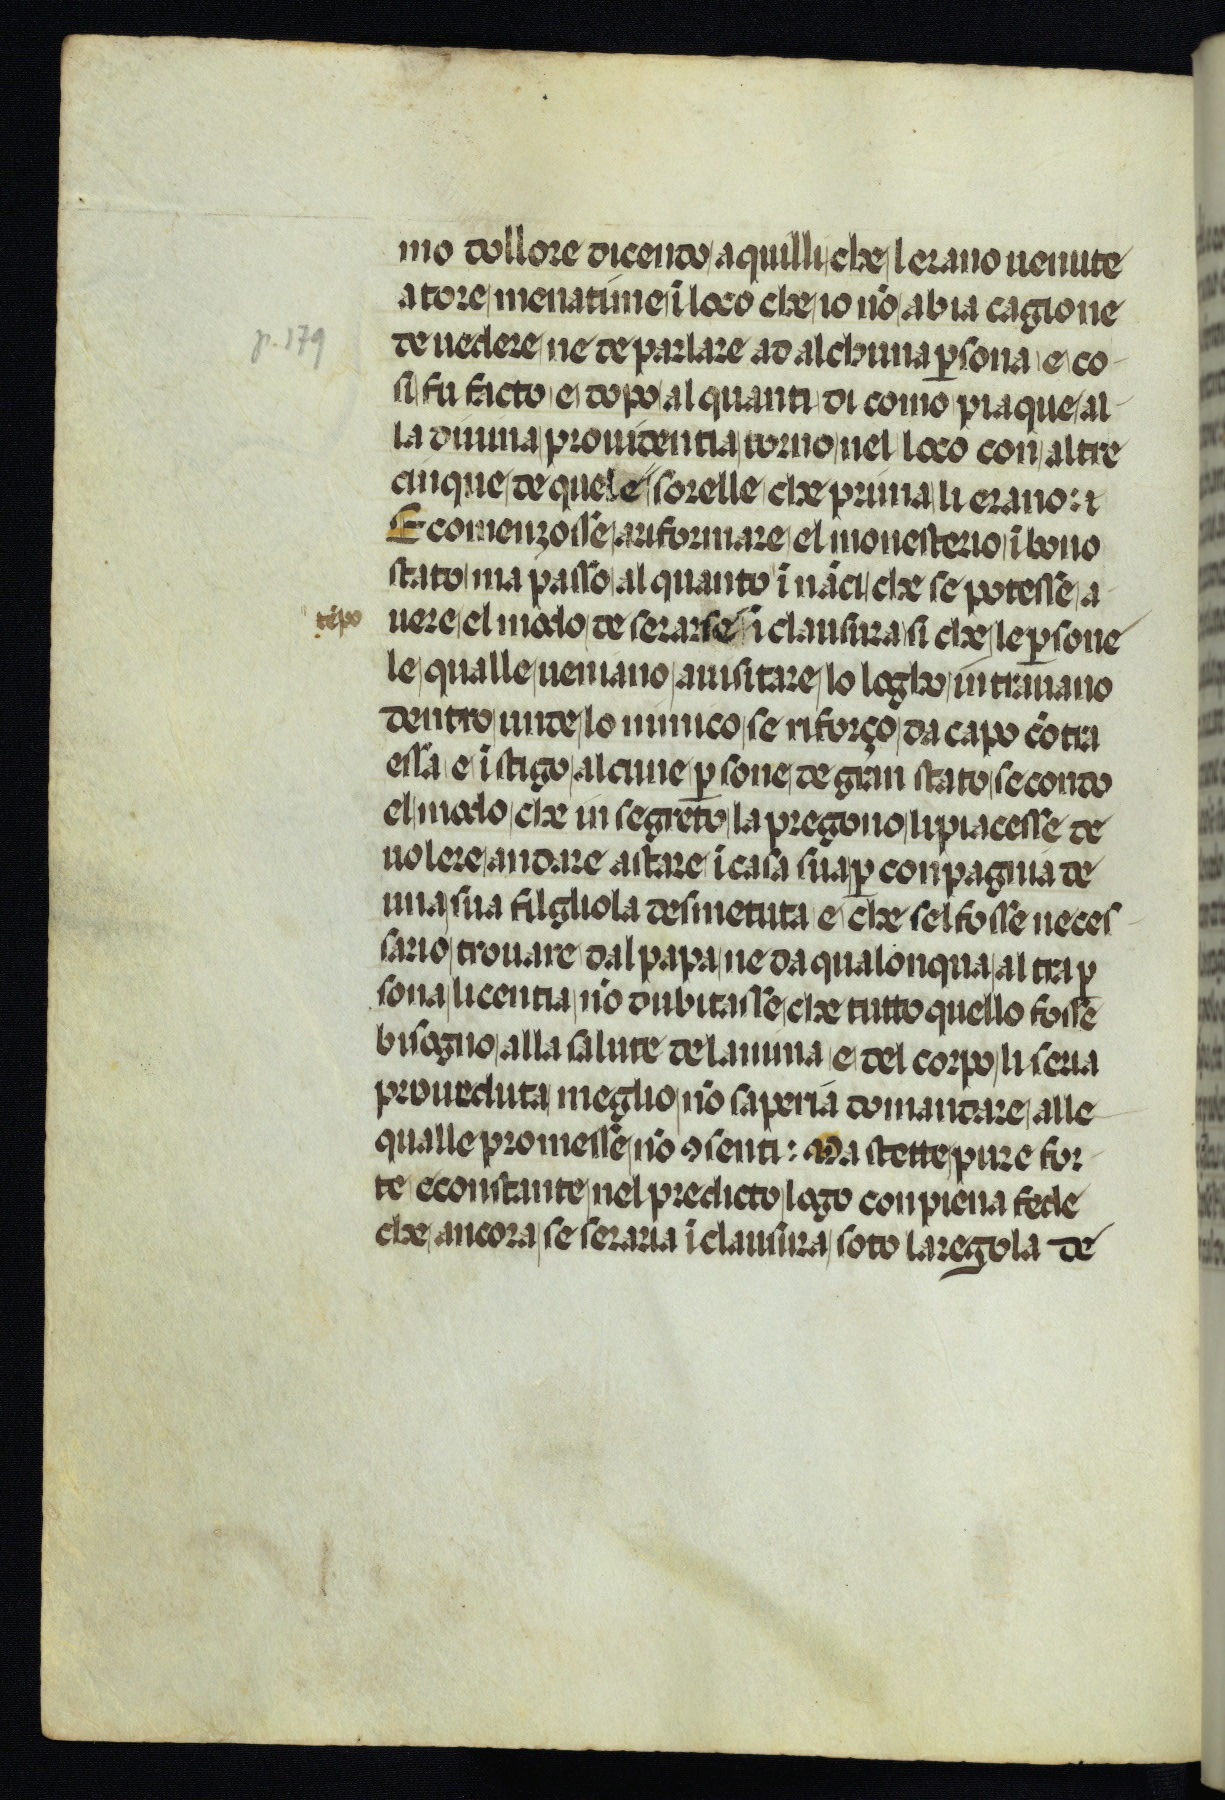 mo dollore dicendo a quilli che l erano uenute
a tore menatime ĩ loco che io nõ abia cagione
p. 179
de uedere ne de parlare ad alchuna p̲sona e co-
si fu facto e dopo alquanti di como piaque al-
la diuina prouidentia torno nel loco con altre
cinque de quele sorelle che prima li erano :i
E comenzosse a riformare el monesterio ĩ bono
stato ma passo alquanto ĩ nãci che se potesse a
tẽpo
uere el modo de serarse ĩ clausura si che le p̲sone
le qualle ueniano a uisitare lo logho intrauano
dentro unde lo nimico se riforço da capo cõtra
essa e ĩstigo alcune p̲sone de gran stato secondo
el modo che in segreto la pregono li piacesse de
uolere andare a stare ĩ casa sua p̲ conpagnia de
una sua filgliola desmetuta e che sel fosse neces
sario trouare dal papa ne da qualonqua altra p̲
sona licentia nõ dubitasse che tutto quello fosse
bisogno alla salute de lanima e del corpo li seria
proueduta meglio nõ saperia domandare alle
qualle promesse nõ ꝯsenti : Ma stette pure for-
te e constante nel predicto logo con piena fede
che ancora se seraria ĩ clausura soto la regola de